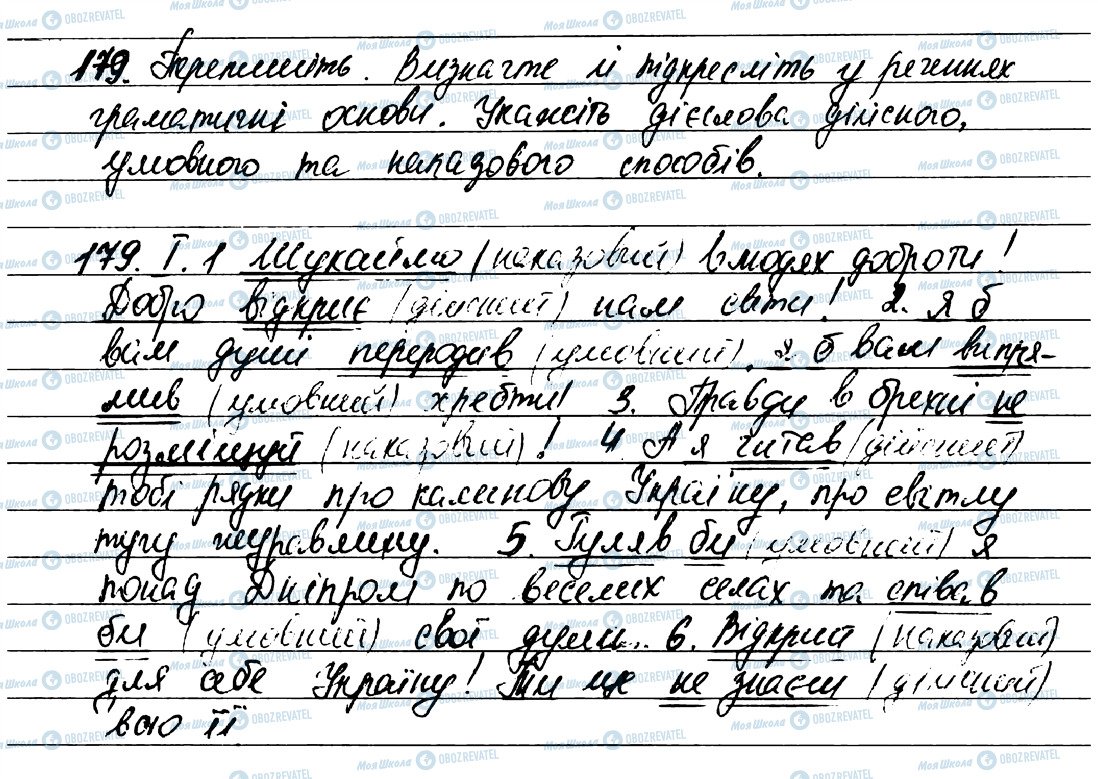 179. Перепишіть. Визначте й підкресліть у реченнях
граматичні основи. Укажіть дієслова дійсного,
умовного та наказового способів.
179. I. 1 Шукаймо (наказовий) в людях доброти!
Добро відкриє (дійсний) нам світи! 2. Я б
вам душі переродив (умовний), я б вам випря-
мив (умовний) хребти! 3. Правду в брехні не
розмінюй (наказовий)! 4. А я читав (дійсний)
тобі рядки про калинову Україну, про світлу
тугу журавлину. 5. Гуляв би (умовний) я
понад Дніпром по веселих селах та співав
би (умовний) свої думи... 6. Відкрий (наказовий)
для себе Україну! Ти ще не знаєш (дійсний)
всю її